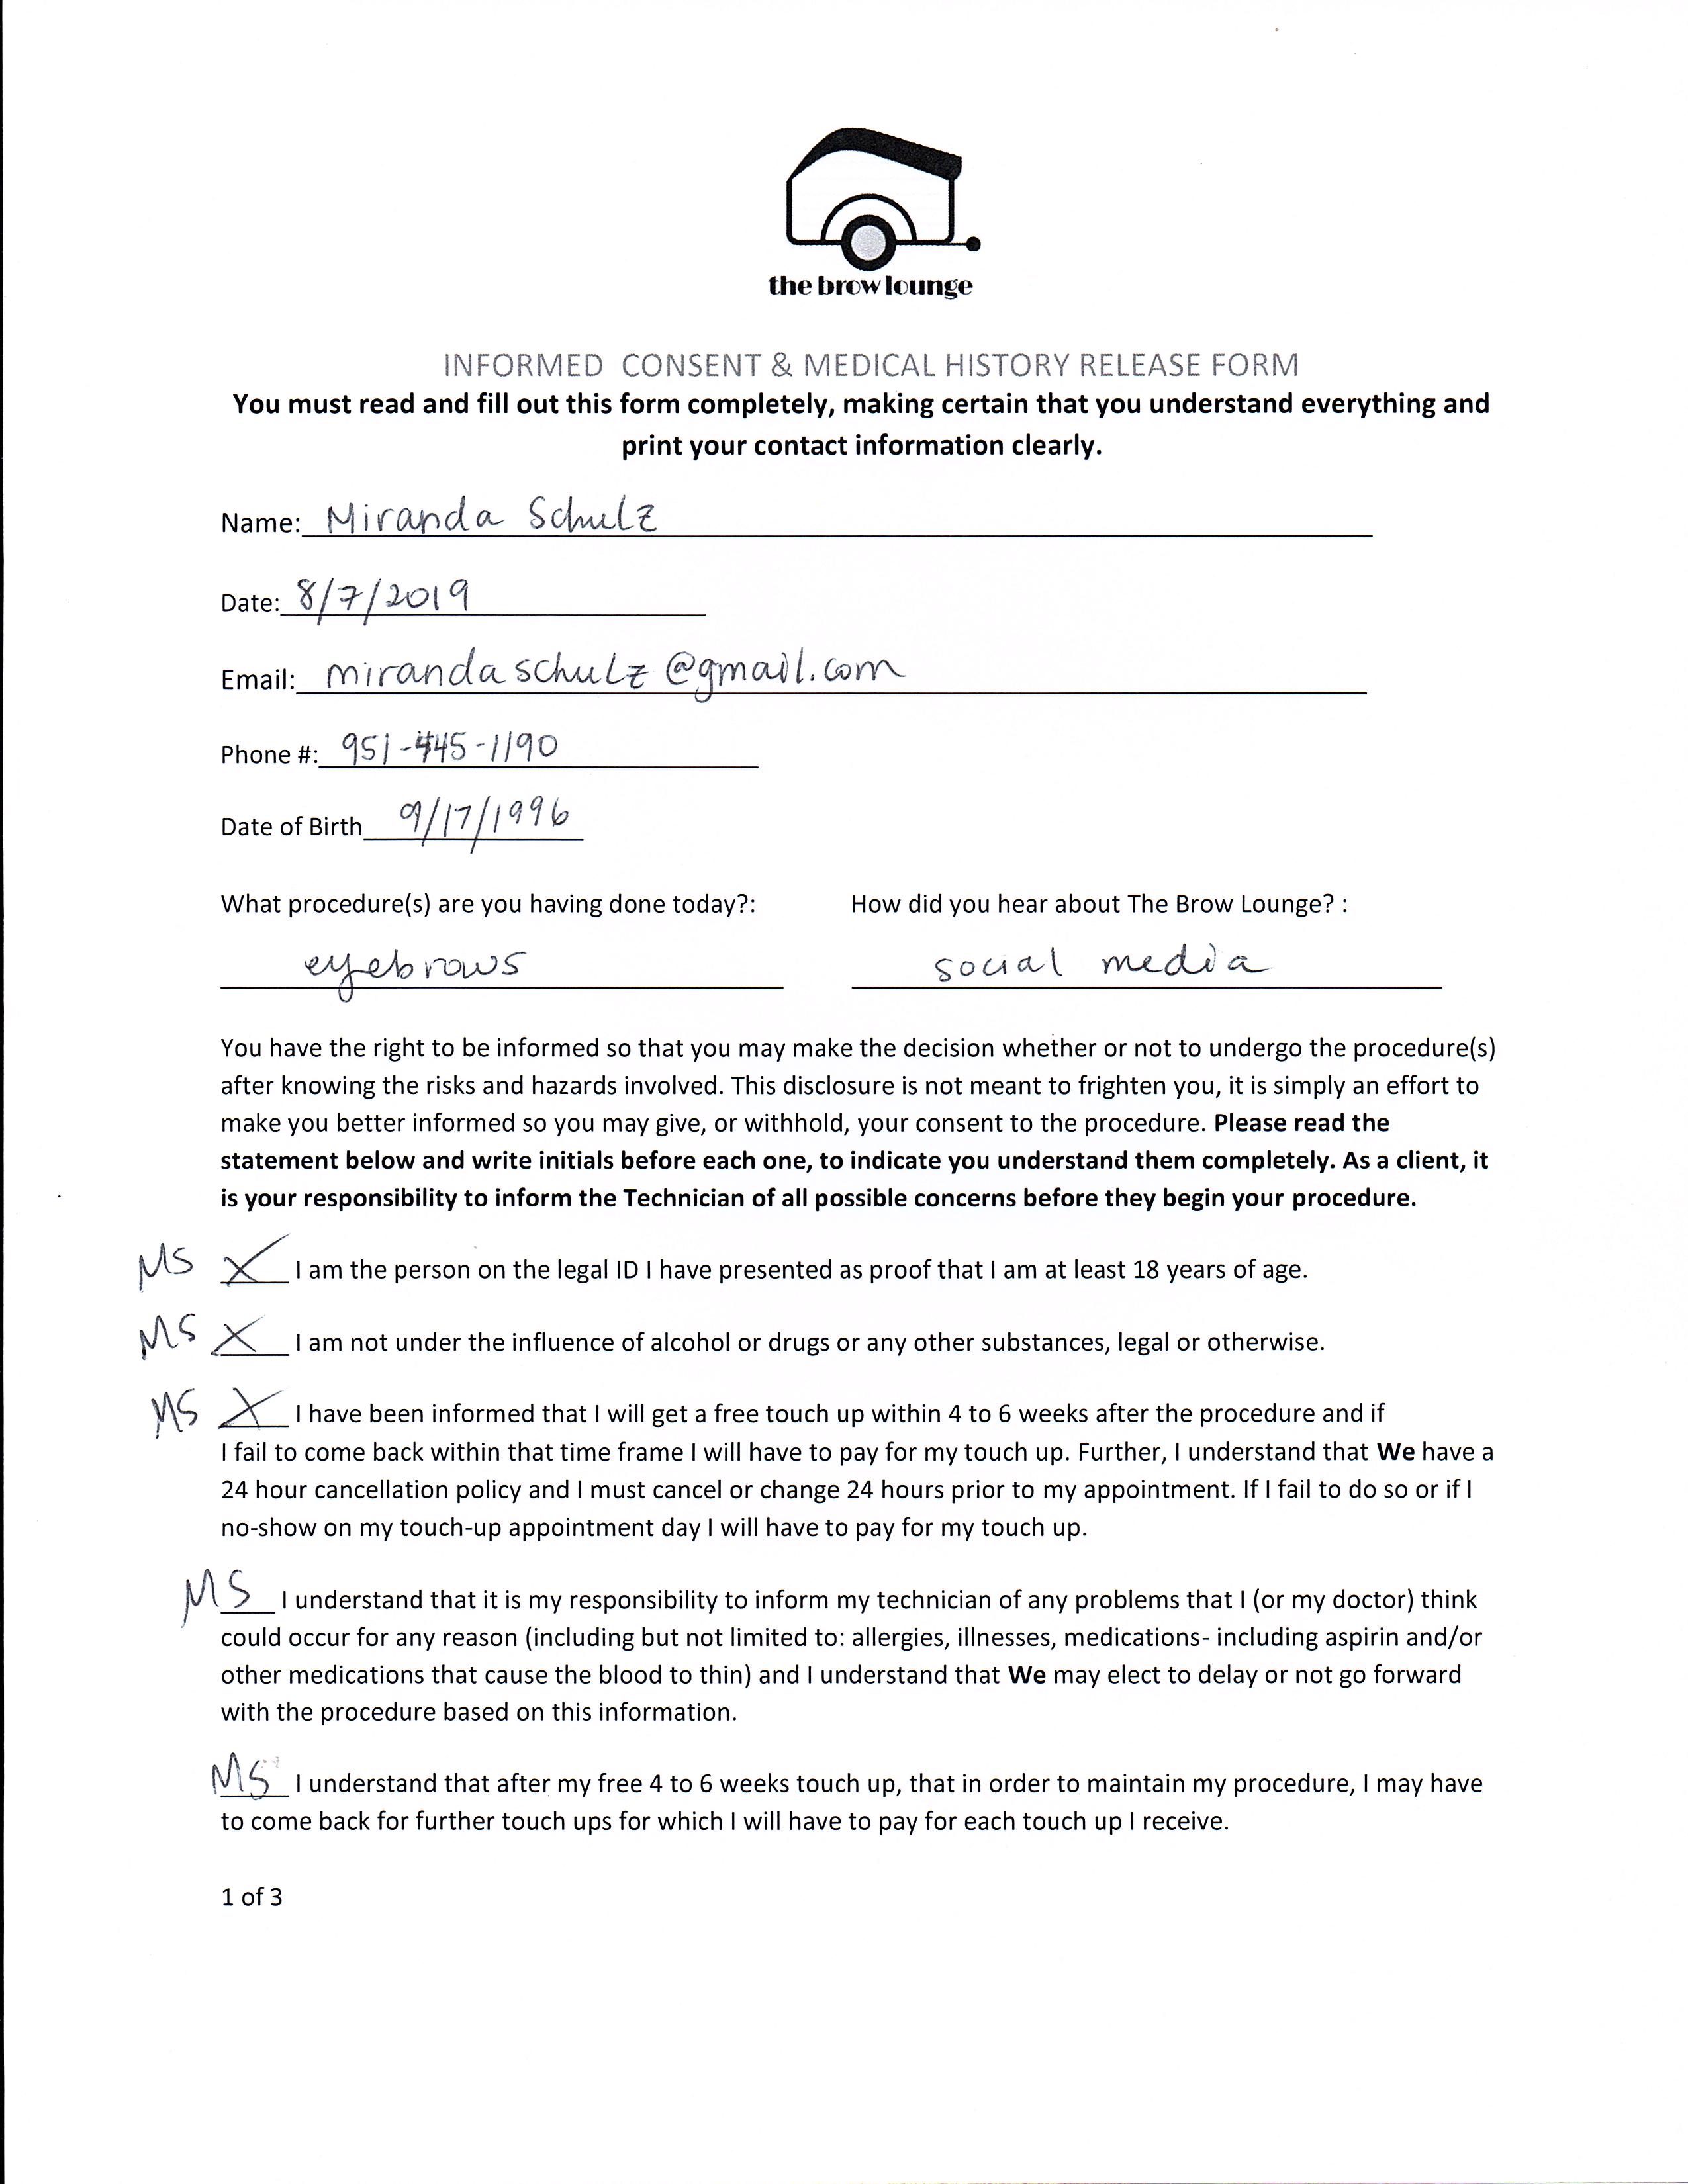 the brow lounge
INFORMED CONSENT & MEDICAL HISTORY RELEASE FORM
You must read and fill out this form completely, making certain that you understand everything and
print your contact information clearly.
Name: Miranda Schulz
Date: 8/7/2019
Email: mirandaschulz@gmail.com
Phone #: 951-445-1190
Date of Birth 9/17/1996
What procedure(s) are you having done today?: How did you hear about The Brow Lounge? :
eyebrows social media
You have the right to be informed so that you may make the decision whether or not to undergo the procedure(s)
after knowing the risks and hazards involved. This disclosure is not meant to frighten you, it is simply an effort to
make you better informed so you may give, or withhold, your consent to the procedure. Please read the
statement below and write initials before each one, to indicate you understand them completely. As a client, it
is your responsibility to inform the Technician of all possible concerns before they begin your procedure.
MS X I am the person on the legal ID I have presented as proof that I am at least 18 years of age.
MS X I am not under the influence of alcohol or drugs or any other substances, legal or otherwise.
MS X I have been informed that I will get a free touch up within 4 to 6 weeks after the procedure and if
I fail to come back within that time frame I will have to pay for my touch up. Further, I understand that We have a
24 hour cancellation policy and I must cancel or change 24 hours prior to my appointment. If I fail to do so or if I
no-show on my touch-up appointment day I will have to pay for my touch up.
MS I understand that it is my responsibility to inform my technician of any problems that I (or my doctor) think
could occur for any reason (including but not limited to: allergies, illnesses, medications- including aspirin and/or
other medications that cause the blood to thin) and I understand that We may elect to delay or not go forward
with the procedure based on this information.
MS I understand that after my free 4 to 6 weeks touch up, that in order to maintain my procedure, I may have
to come back for further touch ups for which I will have to pay for each touch up I receive.
1 of 3